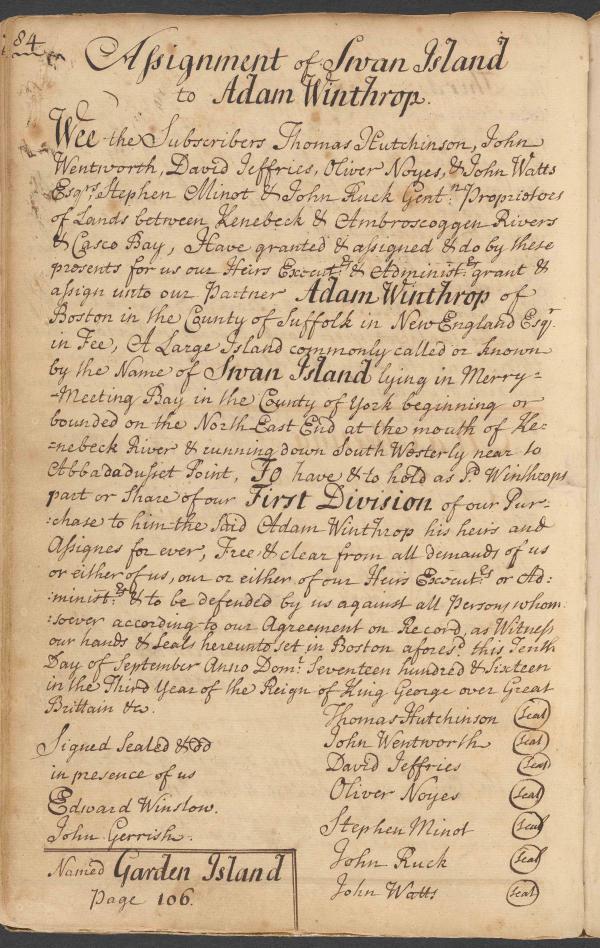 84
Assignment of Swan Island
to Adam Winthrop.
Wee the Subscribers Thomas Hutchinson, John
Wentworth, David Jeffries, Oliver Noyes, & John Watts
Esqrs. Stephen Minot & John Ruck Gentn. Proprietors
of Lands between Kenebeck & Ambroscoggen Rivers
& Casco Bay, Have granted & assigned & do by these
presents for us our Heirs Execut:rs & Administ:rs grant &
assign unto our Partner Adam Winthrop of
Boston in the County of Suffolk in New England Esqr.
in Fee, A Large Island commonly called or known
by the Name of Swan Island lying in Merry=
-Meeting Bay in the County of York beginning or
bounded on the North East End at the mouth of Ke=
=nebeck River & running down South Westerly near to
Abbadadusset Point, To have & to hold as Sd. Winthrops
part or Share of our First Division of our Pur=
:chase to him the said Adam Winthrop his heirs and
Assignes for ever, Free & clear from all demands of us
or either of us, our or either of our Heirs Execut:rs or Ad=
:minist:rs & to be defended by us against all Persons whom
:soever according to our Agreement on Record, as Witness
our hands & Seals hereunto set in Boston aforesd. this Tenth
Day of September Anno Domi. Seventeen hundred & Sixteen
in the Third Year of the Reign of King George over Great
Brittain &c.
Thomas Hutchinson Seal
Signed Sealed & dd
John Wentworth Seal
in presence of us
David Jeffries Seal
Edward Winslow.
Oliver Noyes Seal
John Gerrish.
Stephen Minot Seal
Named Garden Island
John Ruck Seal
Page 106.
John Watts Seal